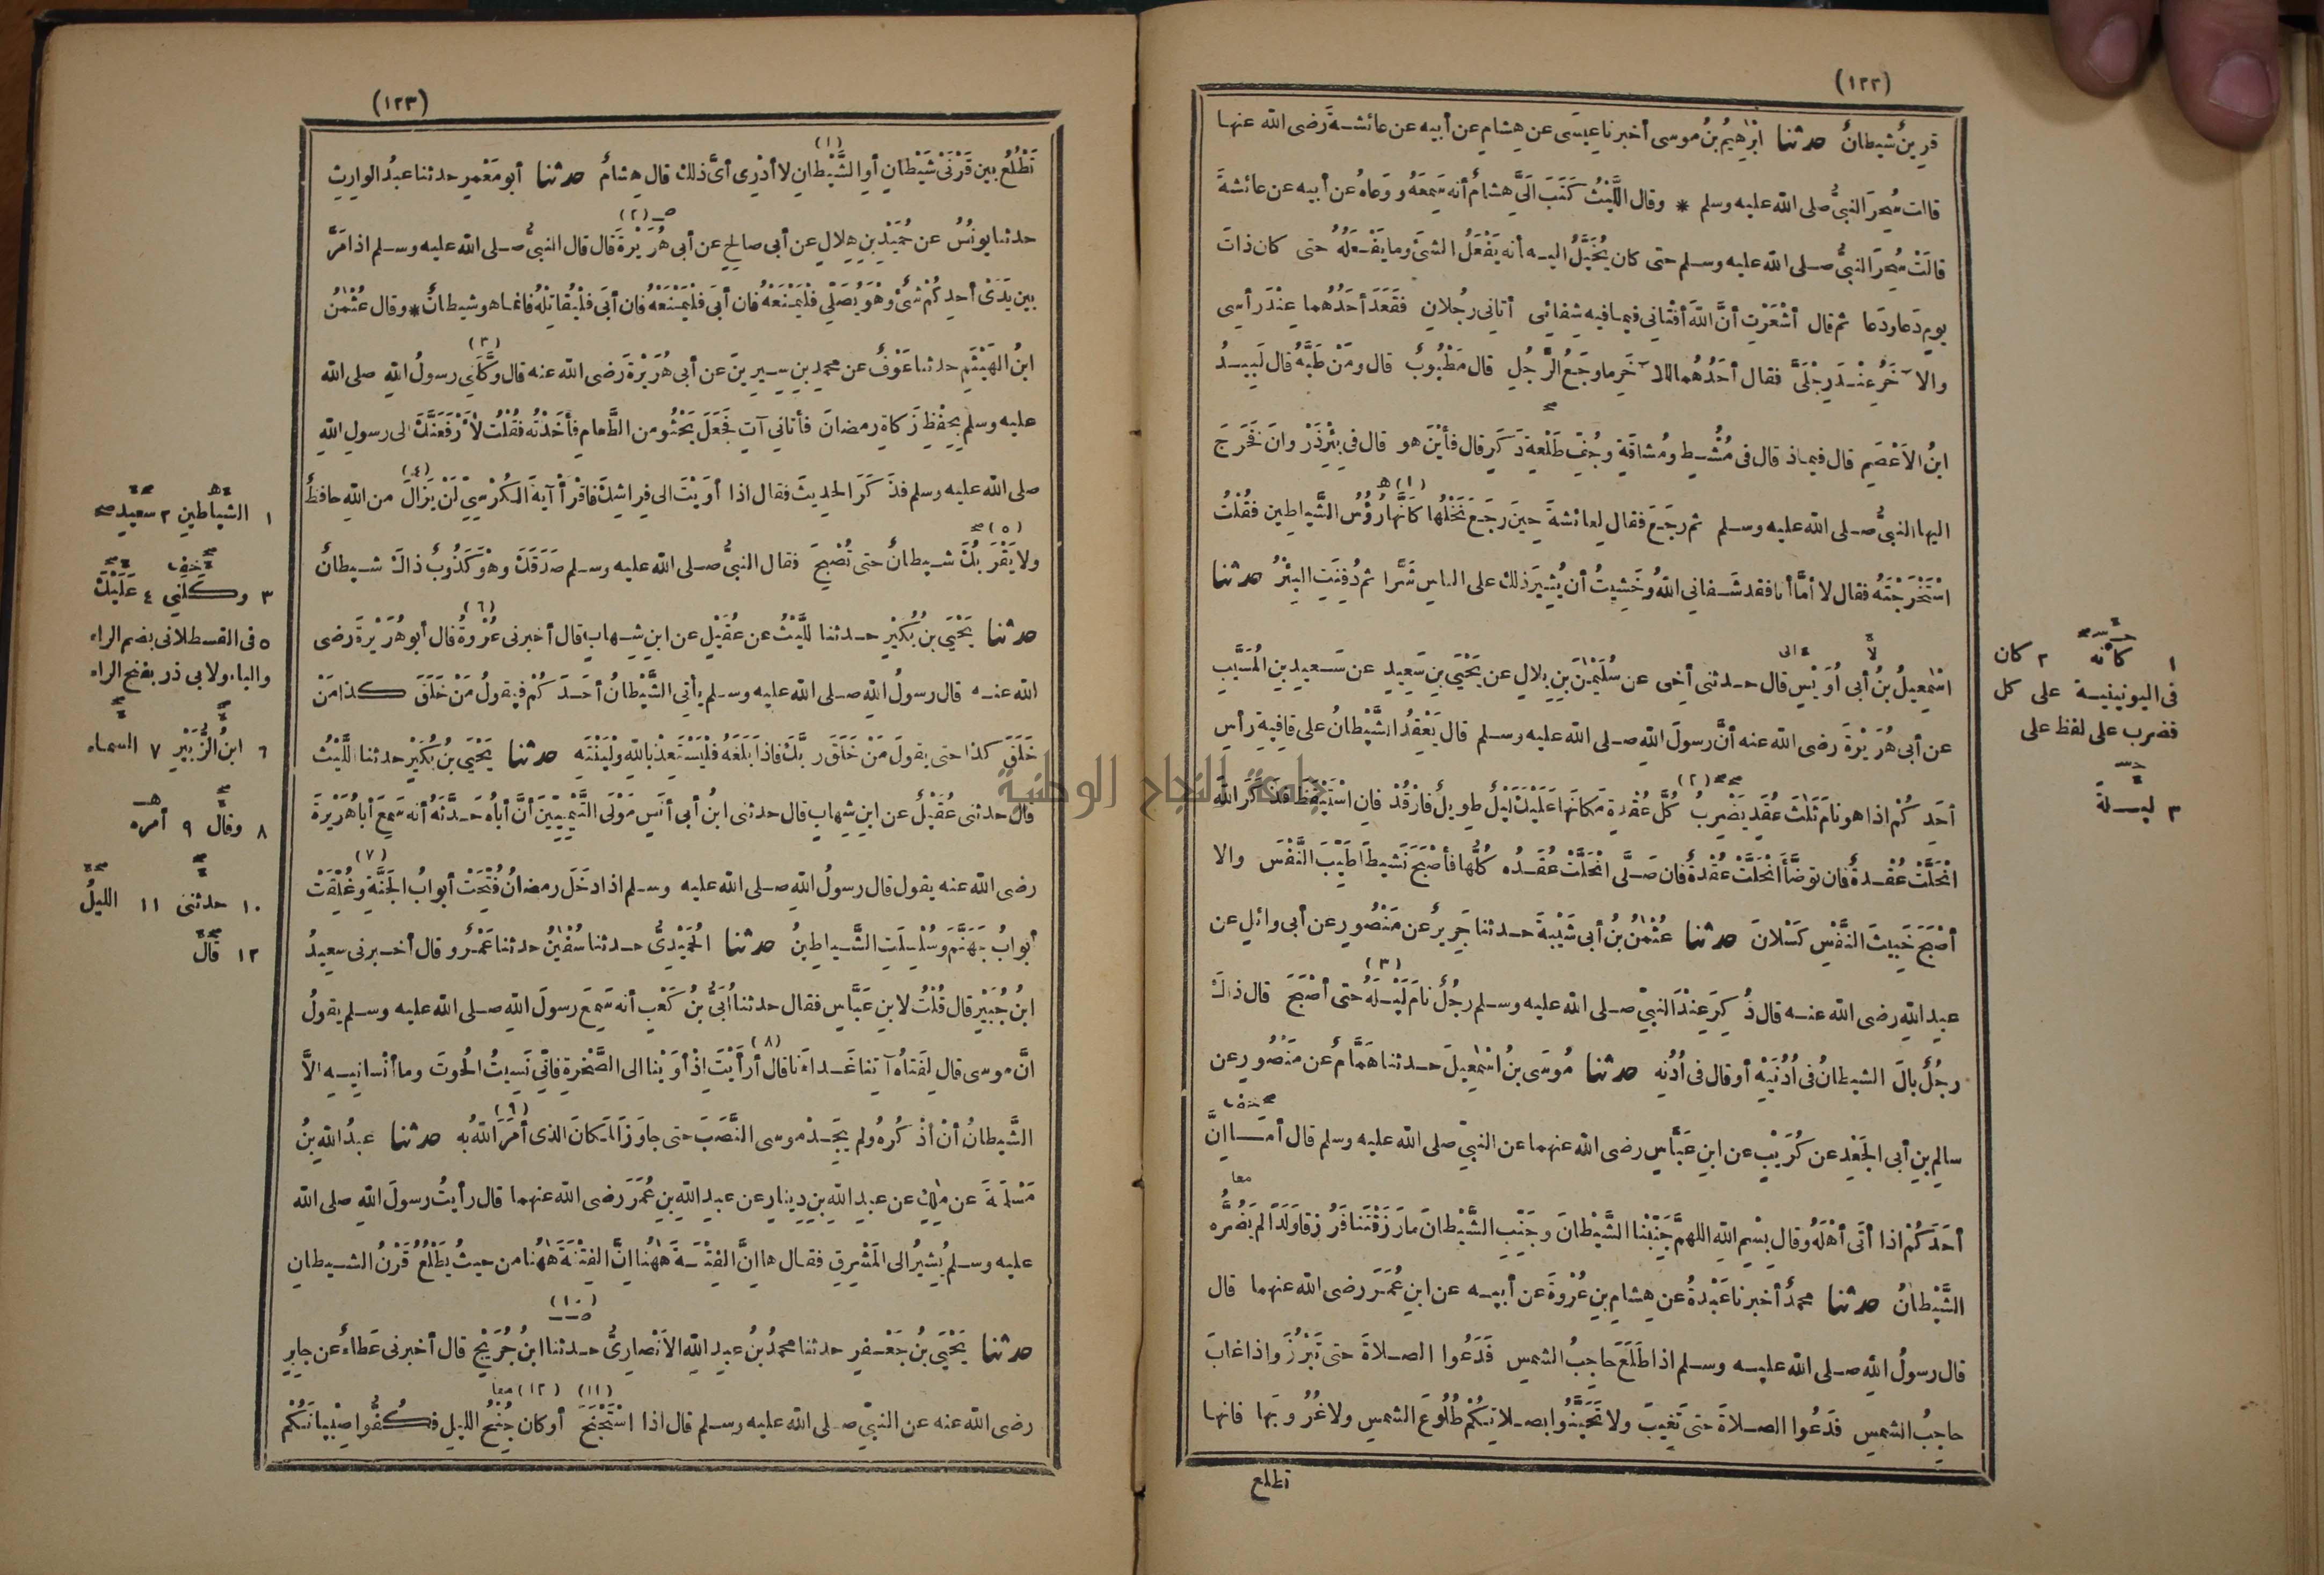 (١٢٢)
قرينُ شيطانٌ حدثنا ابْرٰهِيمُ بنُ موسى أخبرنا عيسَى عن هِشامٍ عن أبيه عن عائشةَ رضى الله عنها
قالت سُحِرَ النبىُّ صلى الله عليه وسلم * وقال اللَّيْثُ كَتَبَ الَىَّ هشامٌ أنه سَمِعَهُ ووَعاهُ عن أبيه عن عائشةَ
قالَتْ سُحِرَ النبىُّ صلى الله عليه وسلم حتى كان يُخَيَّلُ اليه أنه يَفْعَلُ الشىْءَ وما يَفْعَلُهُ حتى كان ذاتَ
يومٍ دَعا ودَعا ثم قال أَشَعَرْتِ أنَّ اللّٰهَ أفْتانى فيما فيه شِفائِى أتانى رجُلانِ فقَعَدَ أحَدُهُما عِنْدَ رأسِى
والآخَرُ عِنْدَ رِجْلَىَّ فقال أحَدُهُما للآخَرِ ما وجَعُ الرَّجُلِ قال مَطْبُوبٌ قال ومَنْ طَبَّهُ قال لَبِيدُ
ابنُ الاَعْصَمِ قال فيماذ قال فى مُشُطٍ ومُشاقَةٍ وجُفِّ طَلْعةٍ ذَكَرٍ قال فأيْنَ هو قال فى بِئْرِ ذَرْوانَ فَخَرَجَ
اليها النبىُّ صلى الله عليه وسلم ثم رجَعَ فقال لعائشةَ حِينَ رجَعَ نَخْلُها كَأنَّها (١) رُؤُسُ الشَّياطِينِ فقُلْتُ
اسْتَخْرَجْتَهُ فقال لا أمَّا أنا فقد شَفانى اللّٰهُ وخَشِيتُ أن يُثِيرَ ذلك على الناسِ شَرًّا ثم دُفِنَتِ البِئْرُ حدثنا
اسْمٰعِيلُ بنُ أبى أُوَيْسٍ قال حدثنى أخى عن سُلَيْمٰنَ بنِ بِلالٍ عن يَحْيَى بنِ سَعِيدٍ عن سَعِيدِ بنِ المُسَيَّبِ
عن أبى هُرَيْرةَ رضى الله عنه أنَّ رسولَ اللّٰهِ صلى الله عليه وسلم قال يَعْقِدُ الشَّيْطانُ على قافِيةِ رأسِ
أحَدِكُمْ اذا هو نامَ ثَلٰثَ عُقَدٍ يَضْرِبُ (٢) كُلَّ عُقْدةٍ مَكانَها عَلَيْكَ لَيْلٌ طوِيلٌ فارْقُدْ فانِ اسْتَيْقَظَ فَذَكَرَ اللّٰهَ
انْحَلَّتْ عُقْدةٌ فان توَضَّأَ انْحَلَّتْ عُقْدةٌ فان صَلَّى انْحَلَّتْ عُقَدُه كُلُّها فأصْبَحَ نَشِيطًا طَيِّبَ النَّفْسِ والا
أصْبَحَ خَبِيثَ النَّفْسِ كَسْلانَ حدثنا عُثْمٰنُ بنُ أبى شَيْبةَ حدثنا جَرِيرٌ عن مَنْصُورٍ عن أبى وائلٍ عن
عبدِ اللّٰهِ رضى الله عنه قال ذُكِرَ عِنْدَ النبىِّ صلى الله عليه وسلم رجُلٌ نامَ لَيْلَهُ (٣) حتى أصْبَحَ قال ذاكَ
رجُلٌ بالَ الشيطانُ فى أُذُنَيْهِ أو قال فى أُذُنِه حدثنا مُوسَى بنُ اسْمٰعِيلَ حدثنا هَمَّامٌ عن مَنْصُورٍ عن
سالِمِ بنِ أبى الجَعْدِ عن كُرَيْبٍ عن ابنِ عَبَّاسٍ رضى الله عنهما عن النبىِّ صلى الله عليه وسلم قال أما انَّ
أحَدَكُمْ اذا أتَى أهْلَهُ وقال بِسْمِ اللّٰهِ اللهمَّ جَنِّبْنا الشَّيْطانَ وجَنِّبِ الشَّيْطانَ ما رَزَقْتَنا فَرُزِقا ولَدًا لم يَضُرَّهُ
الشَّيْطانُ حدثنا محمدٌ أخبرنا عَبْدةُ عن هِشامِ بنِ عُرْوةَ عن أبيه عن ابنِ عُمَرَ رضى الله عنهما قال
قال رسولُ اللّٰهِ صلى الله عليه وسلم اذا طَلَعَ حاجِبُ الشمسِ فَدَعُوا الصلاةَ حتى تَبْرُزَ واذا غابَ
حاجِبُ الشمسِ فدَعُوا الصلاةَ حتى تَغِيبَ ولا تَحَيَّنُوا بصلاتِكُمْ طُلُوعَ الشمسِ ولا غُرُوبَها فانها
تطلع
١ كأنه ٢ كان
فى اليونينية على كل
فضرب على لفظ على
٣ ليلةً
(١٢٣)
تَطْلُعُ بين قَرْنَىْ شَيْطانٍ أوِ الشَّيْطانِ (١) لا أدْرِى أىَّ ذلك قال هِشامٌ حدثنا أبو مَعْمَرٍ حدثنا عبدُ الوارِثِ
حدثنا يونُسُ عن حُمَيْدِ بنِ هِلالٍ عن أبى صالِحٍ عن أبى هُرَيْرةَ (٢) قال قال النبىُّ صلى الله عليه وسلم اذا مَرَّ
بين يَدَىْ أحدِكُمْ شىْءٌ وهْوَ يُصَلِّى فلْيَمْنَعْهُ فان أبَى فلْيَمْنَعْهُ فان أبَى فلْيُقاتِلْهُ فانما هو شيطانٌ * وقال عُثْمٰنُ
ابنُ الهَيْثَمِ حدثنا عَوْفٌ عن محمدِ بنِ سِيرِينَ عن أبى هُرَيْرةَ رضى الله عنه قال وكَّلَنِى (٣) رسولُ اللّٰهِ صلى الله
عليه وسلم بِحِفْظِ زَكاةِ رمضانَ فأتانى آتٍ فَجَعَلَ يَحْثُو من الطَّعامِ فأخَذْتُه فقُلْتُ لأَرْفَعَنَّكَ الى رسولِ اللّٰهِ
صلى الله عليه وسلم فذَكَرَ الحدِيثَ فقال اذا أوَيْتَ الى فِراشِكَ فاقْرَأْ آيةَ الكُرْسِىِّ لَنْ يَزالَ (٤) من اللّٰهِ حافظٌ
ولا يَقْرَبُكَ (٥) شيطانٌ حتى تُصْبِحَ فقال النبىُّ صلى الله عليه وسلم صدَقَكَ وهْوَ كَذُوبٌ ذاكَ شيطانٌ
حدثنا يَحْيَى بنُ بُكَيْرٍ حدثنا اللَّيْثُ عن عُقَيْلٍ عن ابنِ شِهابٍ قال أخبرنى عُرْوةُ (٦) قال أبو هُرَيْرةَ رضى
الله عنه قال رسولُ اللّٰهِ صلى الله عليه وسلم يأتِى الشَّيْطانُ أحَدَكُمْ فيقولُ مَنْ خَلَقَ كذا مَنْ
خَلَقَ كذا حتى يقولَ مَنْ خَلَقَ ربَّكَ فاذا بلَغَهُ فلْيَسْتَعِذْ باللّٰهِ ولْيَنْتَهِ حدثنا يَحْيَى بنُ بُكَيْرٍ حدثنا اللَّيْثُ
قال حدثنى عُقَيْلٌ عن ابنِ شِهابٍ قال حدثنى ابنُ أبى أنَسٍ مَوْلَى التَّيْمِيِّينَ أنَّ أباهُ حَدَّثَهُ أنه سَمِعَ أبا هُرَيْرةَ
رضى الله عنه يقول قال رسولُ اللّٰهِ صلى الله عليه وسلم اذا دَخَلَ رمضانُ فُتِّحَتْ أبوابُ الجَنَّةِ (٧) وغُلِّقَتْ
أبوابُ جَهَنَّمَ وسُلْسِلَتِ الشَّياطِينُ حدثنا الحُمَيْدِىُّ حدثنا سُفْيٰنُ حدثنا عَمْرٌو قال أخبرنى سعِيدُ
ابنُ جُبَيْرٍ قال قُلْتُ لابنِ عَبَّاسٍ فقال حدثنا أُبَىُّ بنُ كَعْبٍ أنه سَمِعَ رسولَ اللّٰهِ صلى الله عليه وسلم يقولُ
انَّ موسى قال لِفَتاهُ آتِنا غَداءَنا قال (٨) أرأَيْتَ اذْ أوَيْنا الى الصَّخْرةِ فانِّى نَسِيتُ الحُوتَ وما أنْسانِيهِ الاَّ
الشَّيطانُ أنْ أذْكُرَهُ ولم يَجِدْ موسى النَّصَبَ حتى جاوَزَ المَكانَ الذى أمَرَ (٩) اللّٰهُ به حدثنا عبدُ اللّٰهِ بنُ
مَسْلَمةَ عن مٰلِكٍ عن عبدِ اللّٰهِ بنِ دِينارٍ عن عبدِ اللّٰهِ بنِ عُمَرَ رضى الله عنهما قال رأيتُ رسولَ اللّٰهِ صلى الله
عليه وسلم يُشِيرُ الى المَشْرِقِ فقال ها انَّ الفِتْنَةَ هٰهُنا انَّ الفِتْنَةَ هٰهُنا من حيثُ يَطْلُعُ قَرْنُ الشيطانِ
حدثنا يَحْيَى بنُ جَعْفرٍ حدثنا محمدُ بنُ عبدِ اللّٰهِ الاَنْصارِىُّ (١٠) حدثنا ابنُ جُرَيْجٍ قال أخبرنى عَطاءٌ عن جابِرٍ
رضى الله عنه عن النبىِّ صلى الله عليه وسلم قال اذا اسْتَجْنَحَ (١١) أو كان (١٢) جُنْحُ الليلِ فكُفُّوا صِبْيانَكُمْ
١ الشياطين ٢ سعيد
٣ وكلنى ٤ عَلَيْكَ
٥ فى القسطلانى بضم الراء
والباء ولابى ذر بفتح الراء
٦ ابنُ الزُّبَيْرِ ٧ السماء
٨ وقال ٩ أمره
١٠ حدثنى ١١ الليلُ
١٢ قال
جامعة النجاح الوطنية